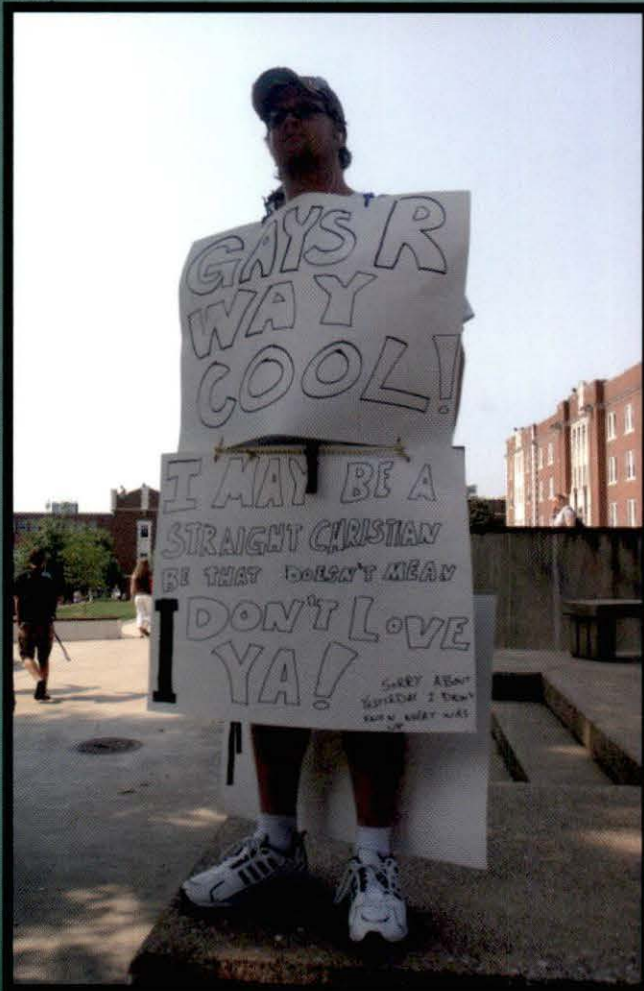 GAYS R
WAY
COOL!
I MAY BE A
STRAIGHT CHRISTIAN
BE THAT DOESN'T MEAN
I DON'T LOVE
YA!
SORRY ABOUT
YESTERDAY I DIDN'T
KNOW WHAT WAS
UP